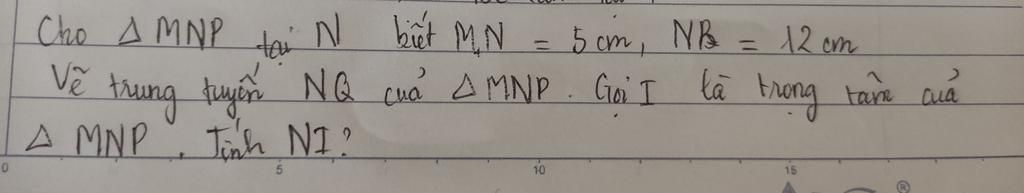 Cho Δ MNP tại N biết MN = 5 cm, NP = 12 cm
Vẽ trung tuyến NQ cuả Δ MNP. Gọi I là trọng tâm cuả
Δ MNP. Tính NI?
0 5 10 15
®